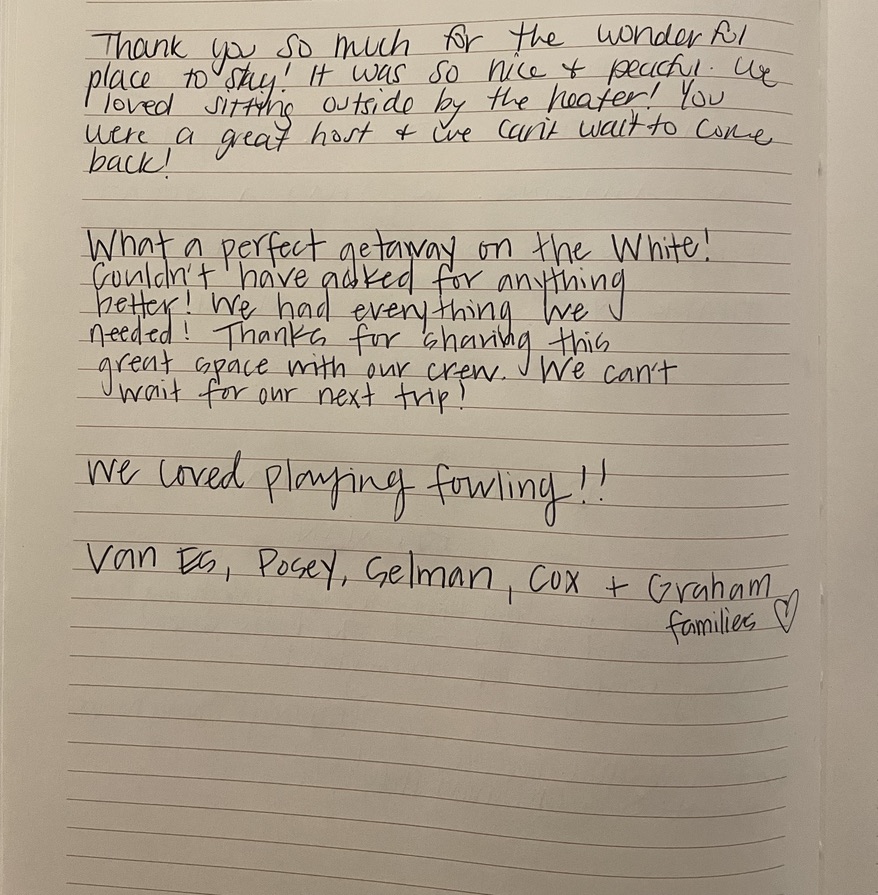 Thank you so much for the wonderful
place to stay! It was so nice + peaceful. We
loved sitting outside by the heater! You
were a great host + we can't wait to come
back!
What a perfect getaway on the White!
Couldn't have asked for anything
better! We had everything we
needed! Thanks for sharing this
great space with our crew. We can't
wait for our next trip!
We loved playing fowling!!
Van Es, Posey, Selman, Cox + Graham
families ♡